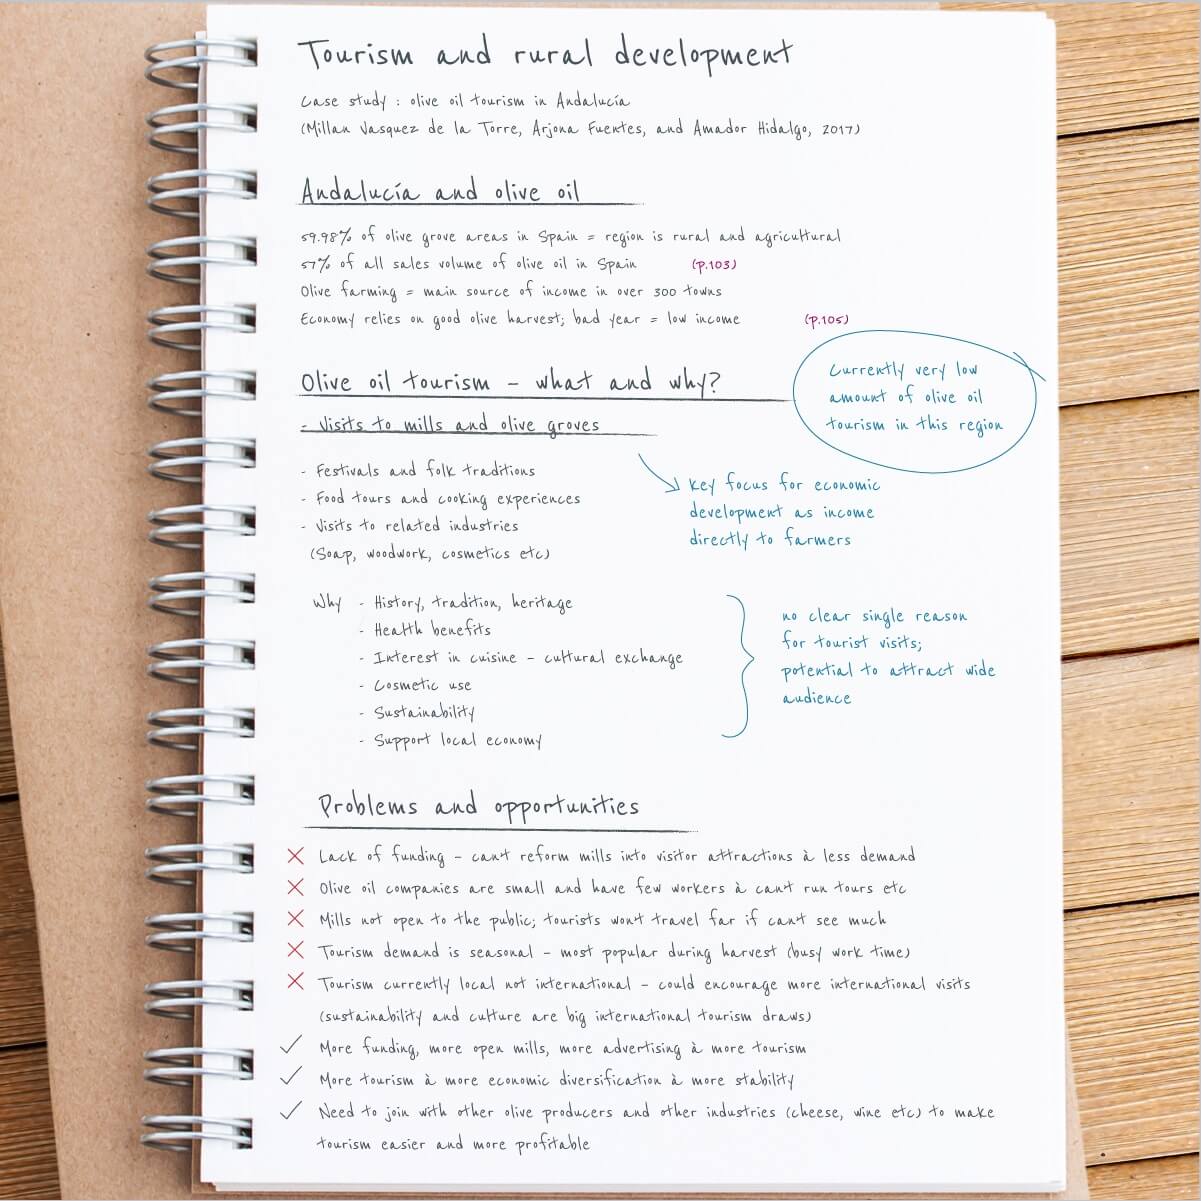 Tourism and rural development
Case study : olive oil tourism in Andalucía
(Millan Vasquez de la Torre, Arjona Fuentes, and Amador Hidalgo, 2017)
Andalucía and olive oil
59.98% of olive grove areas in Spain = region is rural and agricultural
57% of all sales volume of olive oil in Spain (p.103)
Olive farming = main source of income in over 300 towns
Economy relies on good olive harvest; bad year = low income (p.105)
Olive oil tourism - what and why?
Currently very low
amount of olive oil
tourism in this region
- Visits to mills and olive groves
- Festivals and folk traditions
- Food tours and cooking experiences
- Visits to related industries
(Soap, woodwork, cosmetics etc)
Key focus for economic
development as income
directly to farmers
Why - History, tradition, heritage
- Health benefits
- Interest in cuisine - cultural exchange
- Cosmetic use
- Sustainability
- Support local economy
no clear single reason
for tourist visits;
potential to attract wide
audience
Problems and opportunities
Lack of funding - can't reform mills into visitor attractions à less demand
Olive oil companies are small and have few workers à can't run tours etc
Mills not open to the public; tourists won't travel far if can't see much
Tourism demand is seasonal - most popular during harvest (busy work time)
Tourism currently local not international - could encourage more international visits
(sustainability and culture are big international tourism draws)
More funding, more open mills, more advertising à more tourism
More tourism à more economic diversification à more stability
Need to join with other olive producers and other industries (cheese, wine etc) to make
tourism easier and more profitable